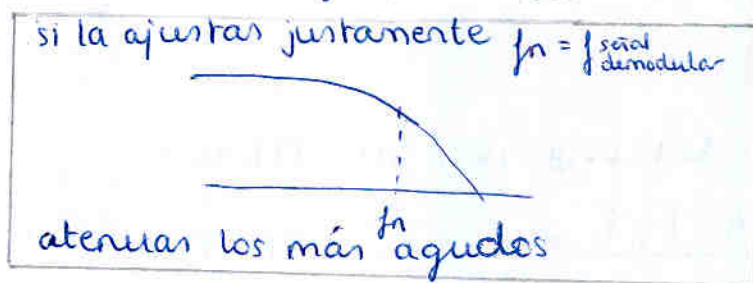 si la ajustas justamente fn = f señal demodular
fn
atenuas los más agudos